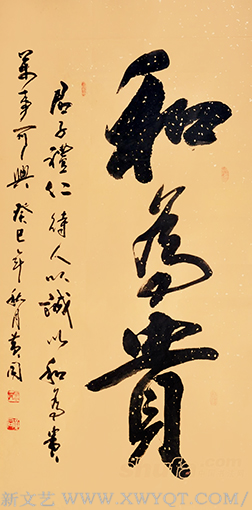 和為貴
君子禮仁待人以誠以和為貴
萬事可興 癸巳年 秋月黃
新文艺 / WWW.XWYQT.COM/